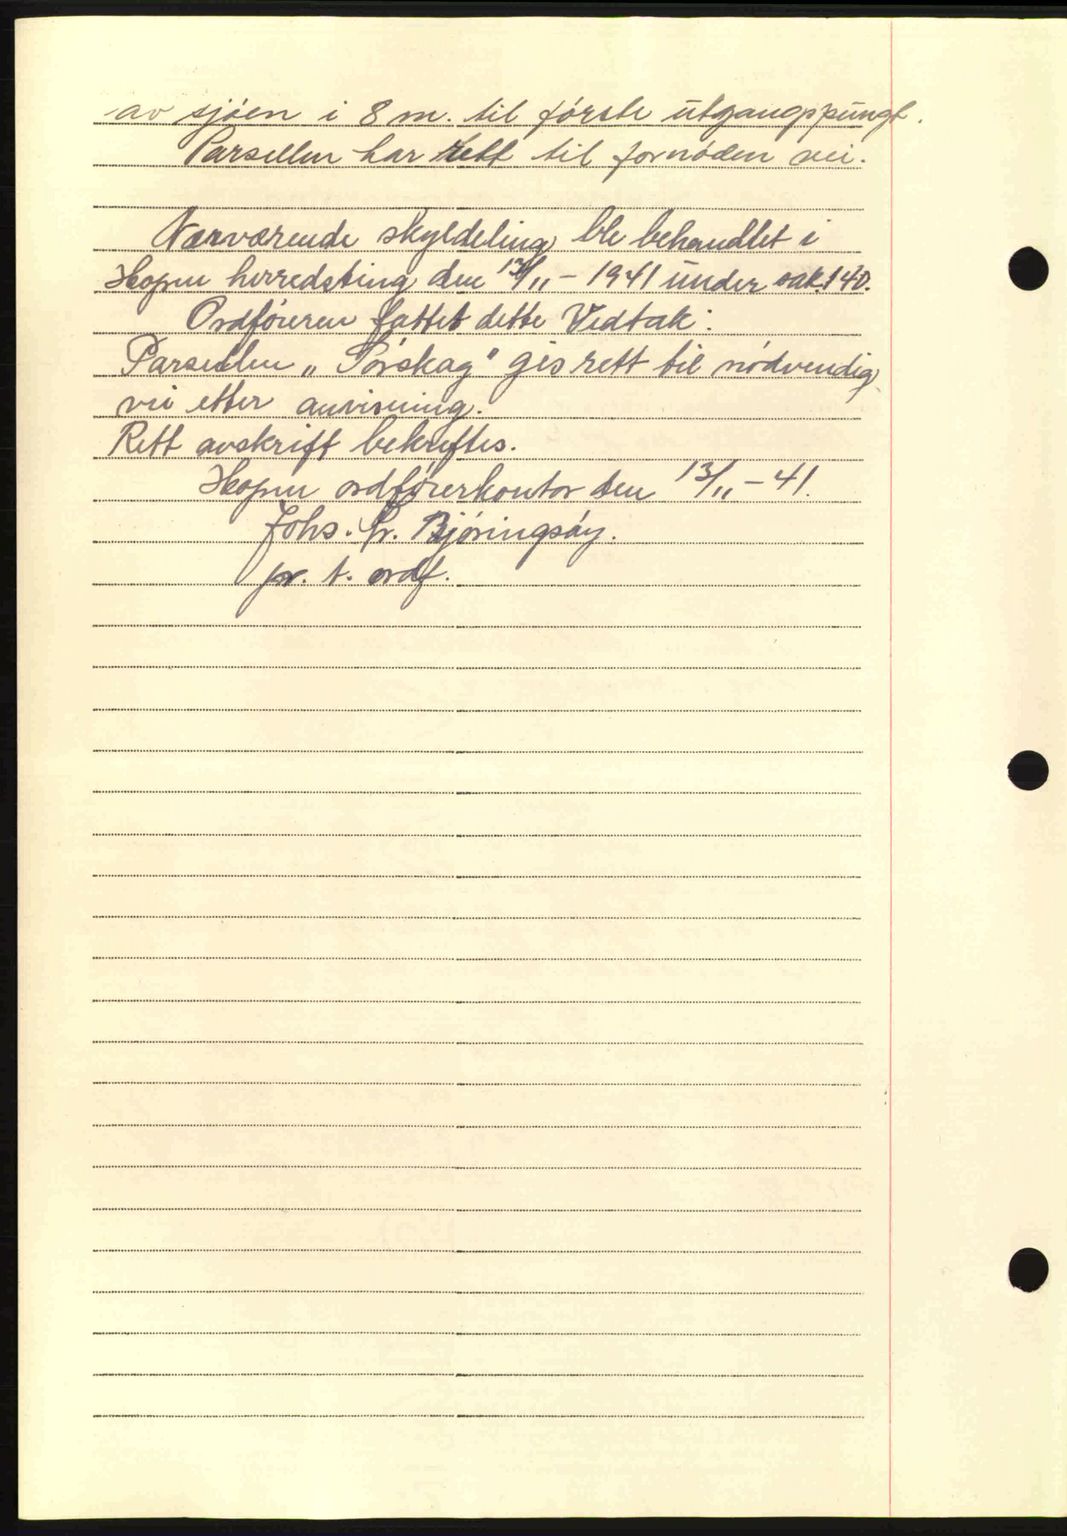 av sjøen i 8 m. til første utgangspungt.
Parsellen har rett til fornøden vei.
Nærværende skyldeling ble behandlet i
Hopen herredsting den 13/11 - 1941 under sak. 140.
Ordføreren fattet dette Vedtak:
Parsellen „Sørskag" gis rett til nødvendig
vei etter anvisning.
Rett avskrift bekreftes.
Hopen ordførerkontor den 13/11 - 41.
Johs. Gr. Bjøringsøy.
pr. t. ordf.